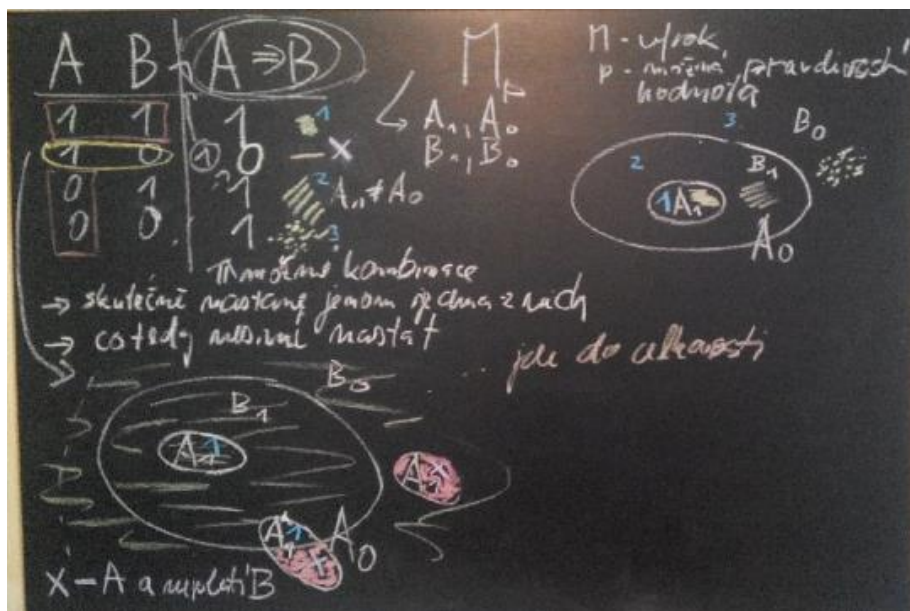 A B A ⇒ B
1 1 1 1
1 0 1 0 — x
0 1 1 2
0 0 1 3
A₁ ≠ A₀
Π p
A₁, A₀
B₁, B₀
Π - výrok
p - možná pravdivostní
hodnota
3 B₀
2 B₁
1 A₁
A₀
možné kombinace
→ skutečně nastane jenom jedna z nich
→ co tedy nesmí nastat
... jde do
B₀
B₁
A₁ 1
A₁ x
A₁ 1
x
A₀
x – A a neplatí B